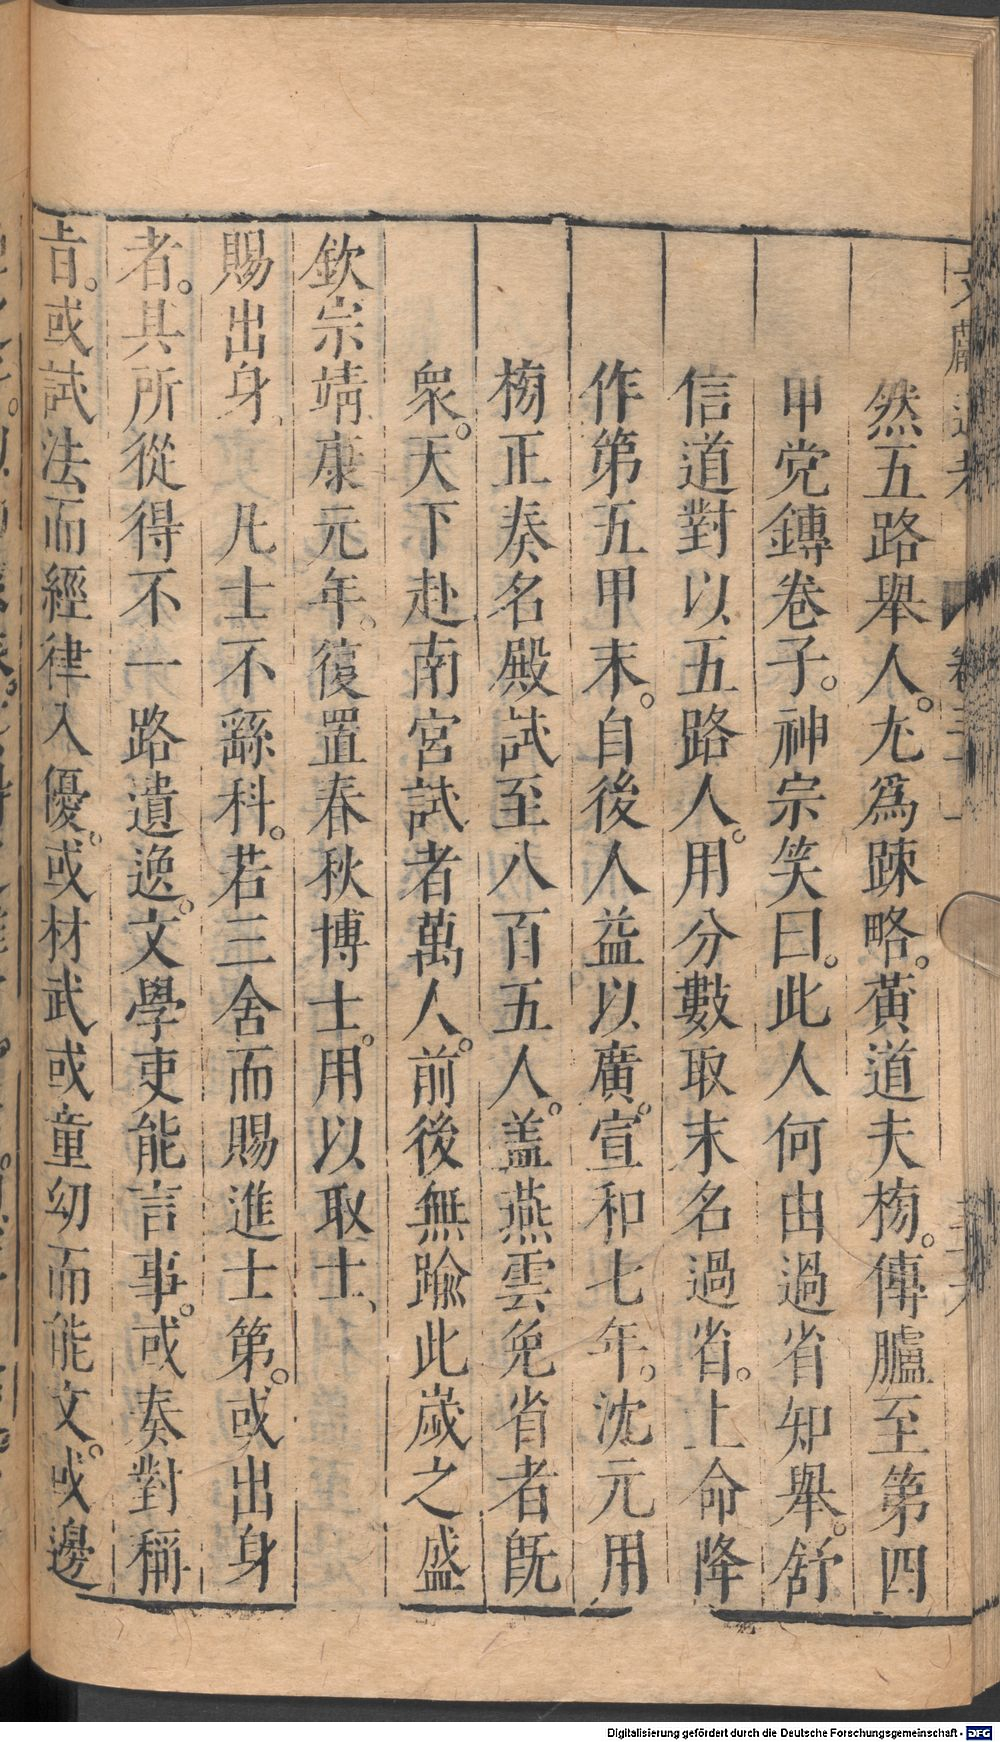 然五路舉人。尢爲踈略。黃道夫榜。傳臚至第四
甲党鏄卷子。神宗笑曰。此人何由過省知舉。舒
信道對以五路人。用分數取末名過省。上命降
作第五甲末。自後人益以廣。宣和七年。沈元用
榜正奏名殿試至八百五人。盖燕雲免省者旣
衆。天下赴南宮試者萬人。前後無踰此歲之盛
欽宗靖康元年。復置春秋博士。用以取士、
賜出身 凡士不繇科。若三舍而賜進士第。或出身
者。其所從得不一路遺逸。文學吏能言事。或奏對稱
旨。或試法而經律入優。或材武或童幼而能文。或邊
Digitalisierung gefördert durch die Deutsche Forschungsgemeinschaft - DFG